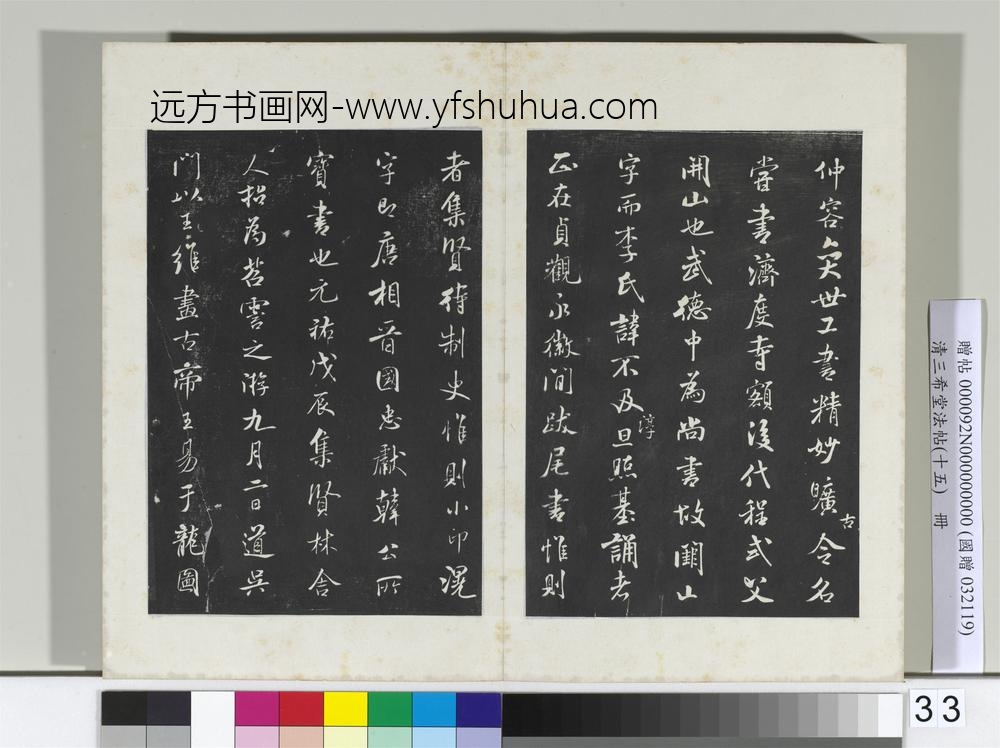 远方书画网-www.yfshuhua.com
仲容奕世工書精妙曠古今名
嘗書濟度寺額後代程式父
開山也武德中為尚書故闕山
字而李氏諱不及旦照基誦淳者
正在貞觀永徽間跋尾書惟則
者集賢待制史惟則小印滉
字即唐相晉國忠獻韓公所
寶書也元祐戊辰集賢林舍
人招為苕霅之游九月二日道吳
門以王維畫古帝王易于龍圖
贈帖 000092N000000000 (國贈 032119)
清三希堂法帖(十五) 冊
33